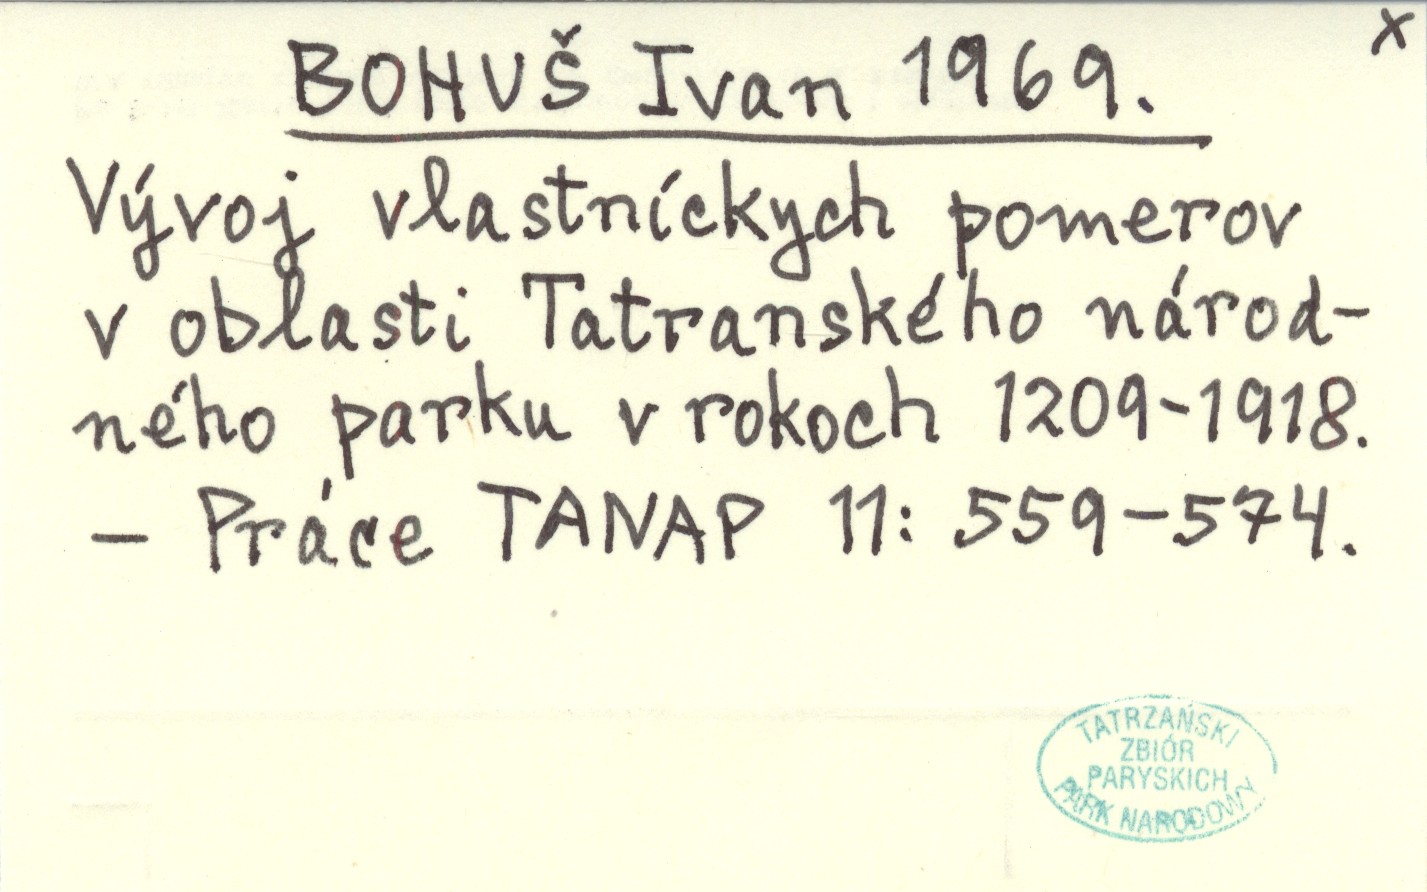 x
BOHUŠ Ivan 1969.
Vývoj vlastníckych pomerov
v oblasti Tatranského národ-
ného parku v rokoch 1209-1918.
- Práce TANAP 11: 559-574.
TATRZAŃSKI
ZBIÓR
PARYSKICH
PARK NARODOWY